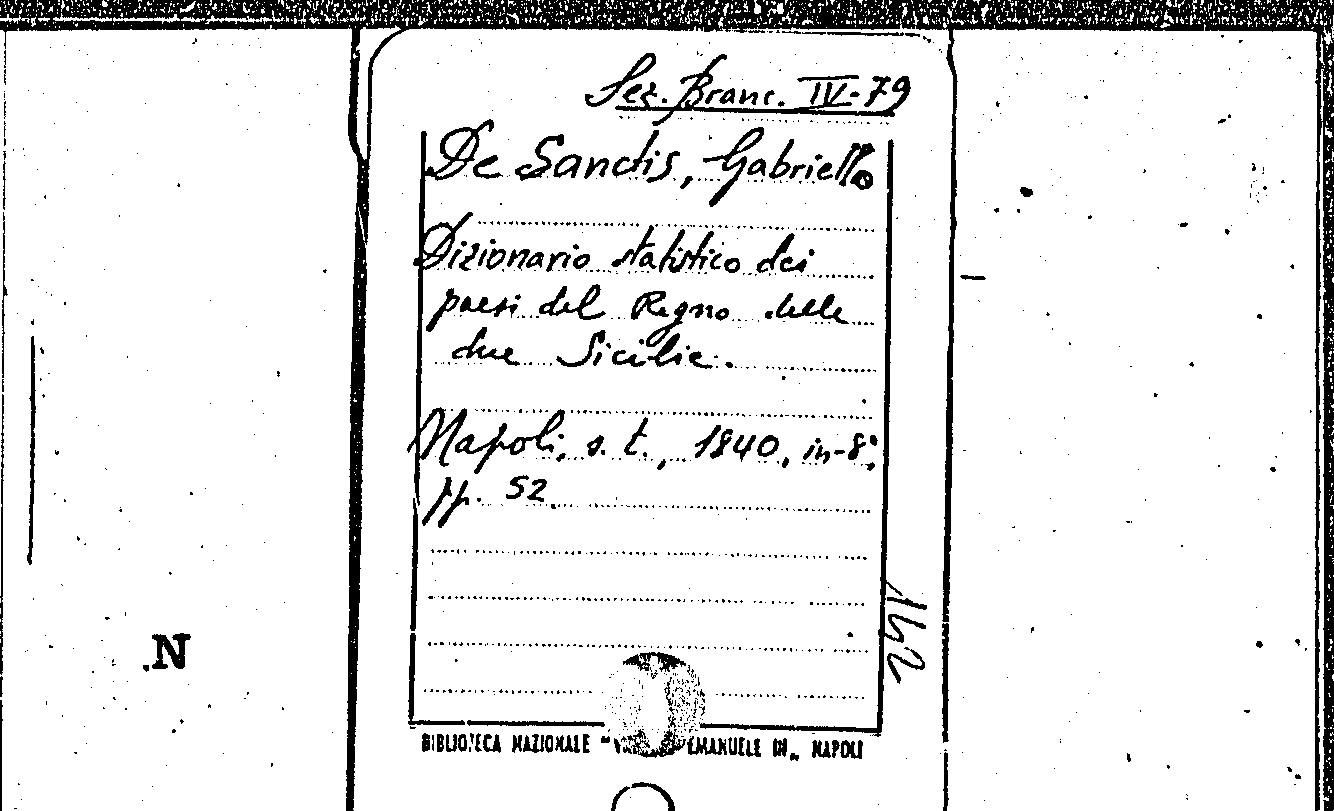 Sez. Branc. IV-79
De Sanctis, Gabriello
Dizionario statistico dei
paesi del Regno delle
due Sicilie.
Napoli, s. t., 1840, in-8°,
pp. 52
142
.N
BIBLIOTECA NAZIONALE " EMANUELE III„ NAPOLI